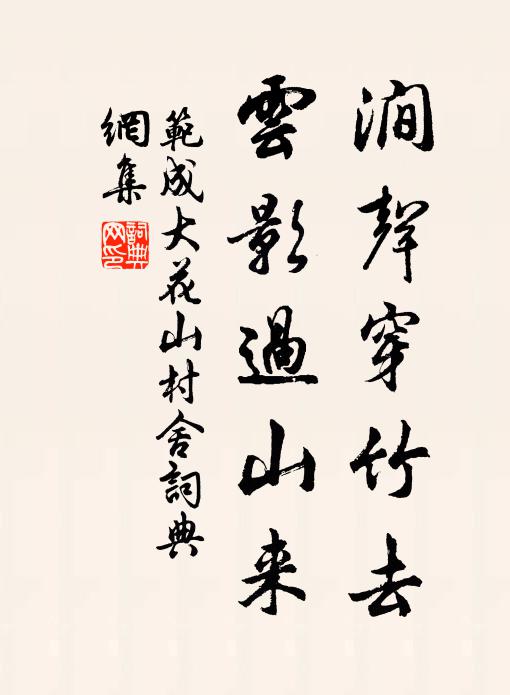 澗聲穿竹去
雲影過山来
範成大花山村舍詞典
網集
詞典
网印